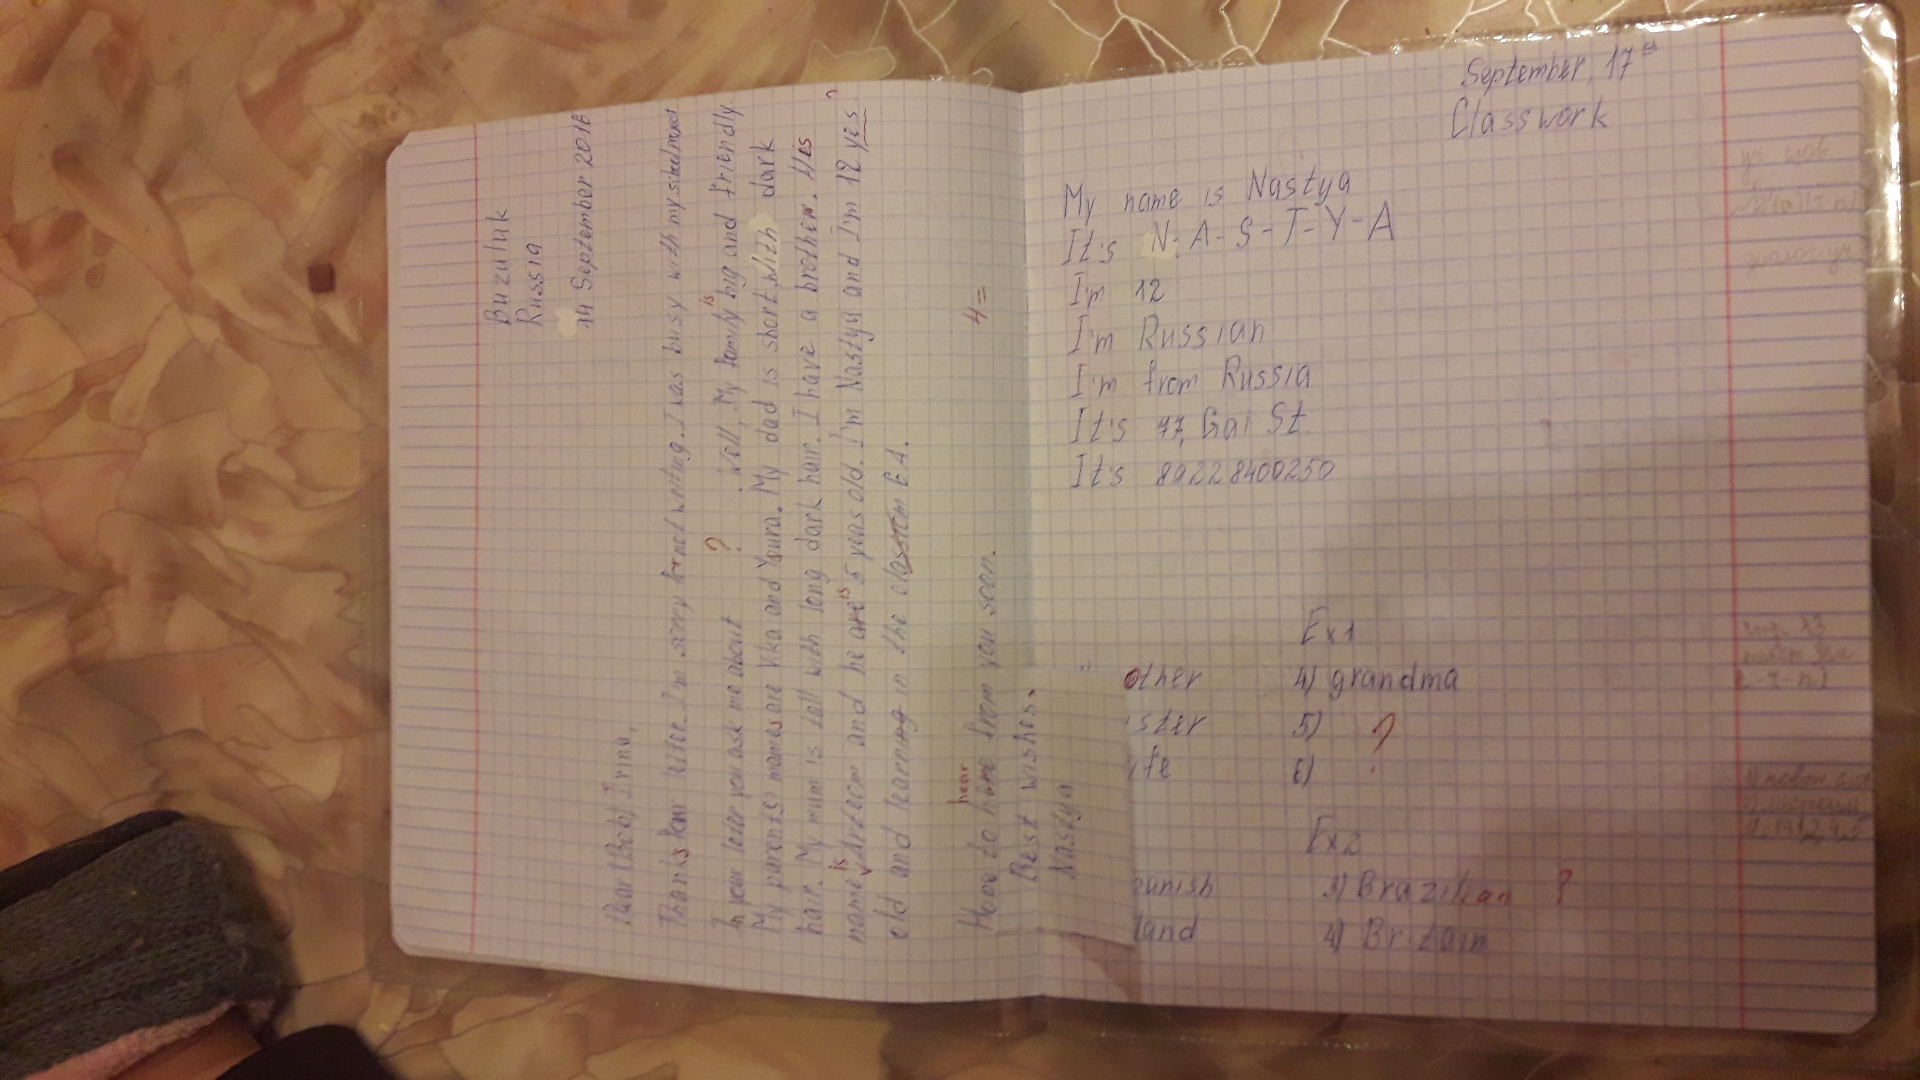 Buzuluk
Russia
14 September 2018
Dear Irina,
Thanks for letter. I'm sorry for not writing. I was busy with my
In your leter you ask me about ? Well, My family is big and friendly
My parents' names are Vika and Youra. My dad is short with dark
hair. My mum is tall with long dark hair. I have a brother. His
name is Artecm and he are is 5 years old. I'm Nastya and I'm 12 yes ?
old and learning in the classrom 6 A.
4=
Hope to hare hear from you soon.
Best wishes,
Nastya
September, 17
Classwork
My name is Nastya
It's N-A-S-T-Y-A
I'm 12
I'm Russian
I'm from Russia
It's 77, Gai St.
It's 89228400250
Ex1
other 4) grandma
ster 5) ?
ife 6)
Ex2
panish 3) Brazilian ?
land 4) Britain